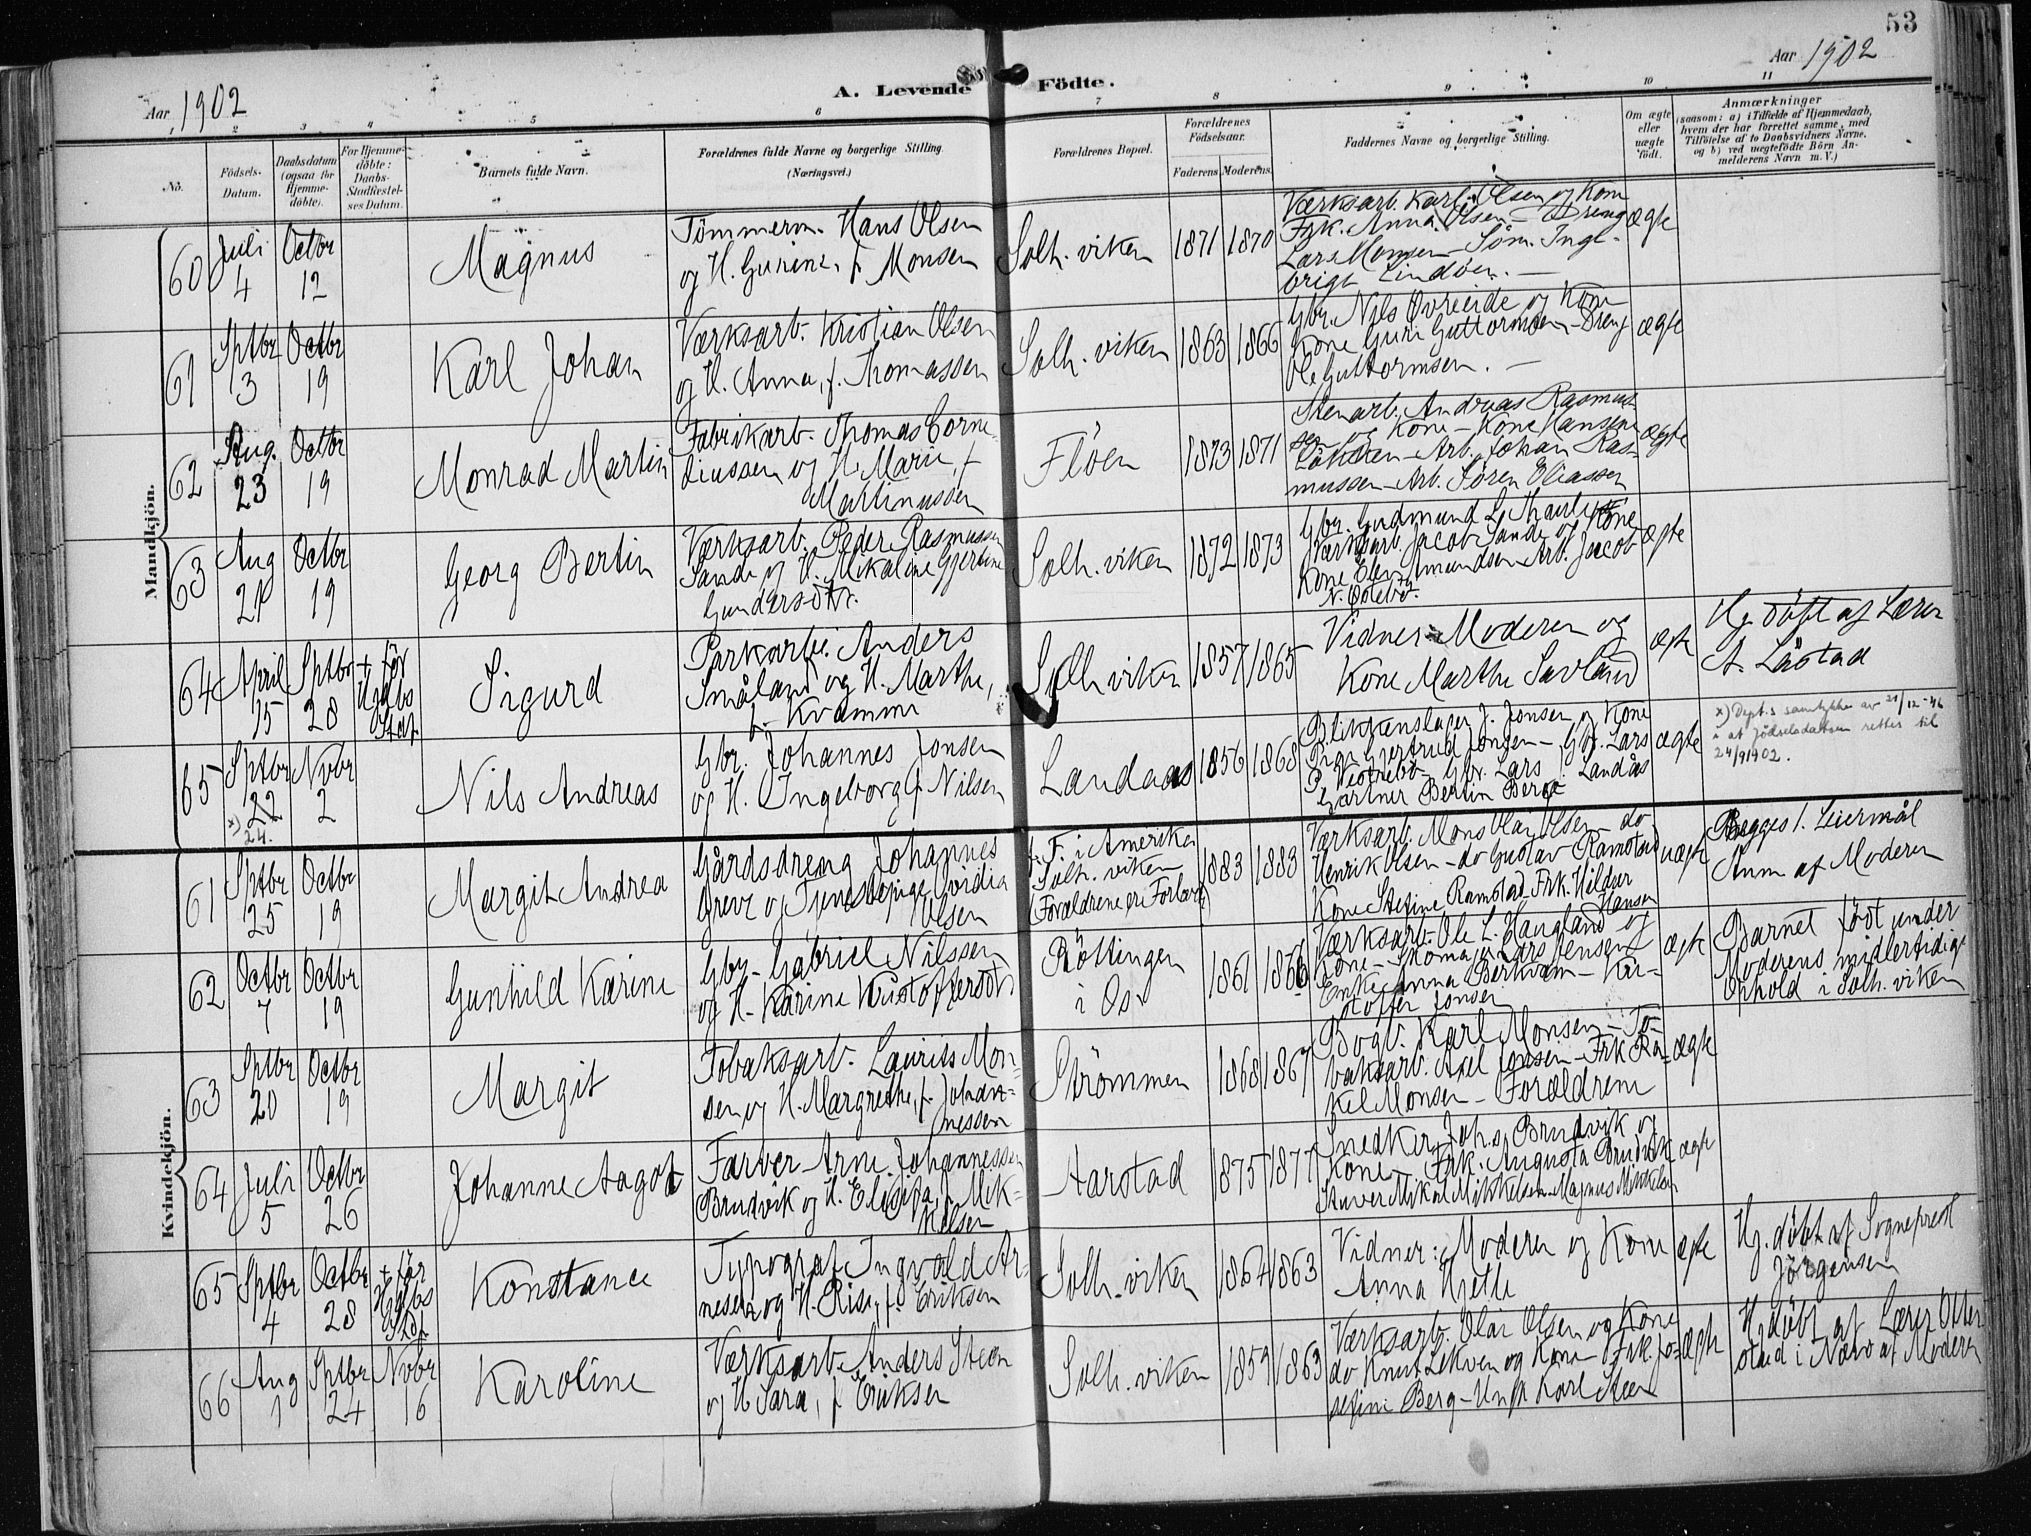 53
Aar 1902
A. Levende Födte.
Aar 1902
1 2 3 4 5 6 7 8 9 10 11
No.
Födsels-
Datum.
Daabsdatum
(ogsaa for
Hjemme-
döbte).
For Hjemme-
döbte:
Daabs-
Stadfæstel-
ses Datum.
Barnets fulde Navn.
Forældrenes fulde Navne og borgerlige Stilling
(Næringsvei.)
Forældrenes Bopæl.
Forældrenes
Födselsaar.
Faderens. Moderens.
Faddernes Navne og borgerlige Stilling.
Om ægte
eller
uægte
födt.
Anmærkninger
(saasom: a) i Tilfælde af Hjemmedaab,
hvem der har forrettet samme, med
Tilföielse af to Daabsvidners Navne.
og b) ved uægtefödte Börn An-
melderens Navn m. V.)
Mandkjön.
60
Juli
4
Octbr
12
Magnus
Tömmerm. Hans Olsen
og H. Gurine, f. Monsen
Solh. viken
1871
1870
Værksarb. Karl Olsen og Kone
Frk. Anna Olsen - Dreng
Lars Monsen - Söm. Inge-
brigt Lindöen. -
ægte
61
Sptbr
3
Octbr
19
Karl Johan
Værksarb. Kristian Olsen
og H. Anna, f. Thomassen
Solh. viken
1863
1866
Gbr. Nils Övreeide og Kone
Kone Guri Guttormsen - Dreng
Ole Guttormsen. -
ægte
62
Aug.
23
Octbr
19
Monrad Martin
Fabrikarb. Thomas Corne-
liussen og H. Marie, f.
Martinussen
Flöen
1873
1871
Stenarb. Andreas Rasmus-
sen og Kone - Kone
Arb. Johan Ras-
mussen - Arb. Sören Eliassen
ægte
63
Aug
21
Octbr
19
Georg Bertin
Værksarb. Peder Rasmussen
Sande og H. Mikaline Gjertine
Gundersdtr.
Solh. viken
1872
1873
Gbr. Gudmund L.
Værksarb. Jacob Sande og Kone
Kone Amundsen - Arb. Jacob
N. Östebö.
ægte
64
April
15
Sptbr
28
+ för
Hjdbs
Staf.
Sigurd
Parkarb. Anders
Småland og H. Marthe,
f. Kvamme
Solh. viken
1857
1865
Vidner: Moderen og
Kone Marthe Sævland
ægte
Hj. döbt af Lærer
A. Låstad
65
Sptbr
22
x) 24.
Nvbr
2
Nils Andreas
Gbr. Johannes Jonsen
og H. Ingeborg f. Nilsen
Landaas
1856
1868
Blikkenslager J. Jonsen og Kone
Pige Gjertrud Jonsen - Gbr. Lars
P. - Gbr. Lars Landås
Gartner Bertin Berge
ægte
x) Dept.s samtykke av 21/12-46
i at födselsdatoen rettes til
24/9 1902.
Kvindekjön.
61
Sptbr
25
Octbr
19
Margit Andrea
Gårdsdreng Johannes
Greve og Tjenestepige Ovidia
Olsen
F. i Amerika
Solh. viken
(Forældrene ere Forlovede)
1883
1883
Værksarb. Mons Olai Olsen - do
Henrik Olsen - do Gustav Ramstad
Kone Stefine Ramstad - Frk. Hildur
Hansen
uægte
Begges 1. Leiermål
Anm af Moderen
62
Octbr
7
Octbr
19
Gunhild Karine
Gbr. Gabriel Nilssen
og H. Karine Kristoffersdtr.
Röttingen
i Os
1861
1866
Værksarb. Ole L. Haugland og
Kone - Skomager Lars Jensen
Enke Anna Berkvam - Kri-
stoffer Jonsen
ægte
Barnet födt under
Moderens midlertidige
Ophold i Solh. viken
63
Sptbr
20
Octbr
19
Margit
Tobaksarb. Laurits Mon-
sen og H. Margrethe, f. Johan-
nessen
Strömmen
1868
1867
Bogb. Karl Monsen - To-
baksarb. Axel Jonsen - Frk Ra-
kel Monsen - Forældrene
ægte
64
Juli
5
Octbr
26
Johanne Aagot
Farver Arne Johannessen
Brudvik og H. Elisipa, f. Mik-
kelsen
Aarstad
1875
1877
Snedker Johs. Brudvik og
Kone - Frk. Augusta Brudvik
Stuver Mikal Mikkelsen - Magnus Mikkelsen
ægte
65
Sptbr
4
Octbr
28
+ för
Hjdbs
Stdf.
Konstance
Typograf Ingvald Ar-
nesen og H. Risi, f. Eriksen
Solh. viken
1864
1863
Vidner: Moderen og Kone
Anna Hjelle
ægte
Hj. döbt af Sogneprest
Jörgensen
66
Aug
1
Sptbr
24
Nvbr
16
Karoline
Værksarb. Anders Steen
og H. Sara, f. Eriksen
Solh. viken
1859
1863
Værksarb. Olai Olsen og Kone
do Knut Lekven og Kone - Frk. Jo-
sefine Berg - Ungk. Karl Steen
ægte
H. döbt af Lærer Otter-
stad i Nærv. af Moderen